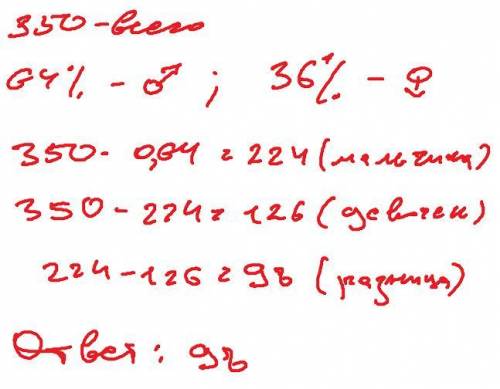 350 - всего
64% - ♂ ; 36% - ♀
350 · 0,64 = 224 (мальчики)
350 - 224 = 126 (девочек)
224 - 126 = 98 (разница)
Ответ: 98